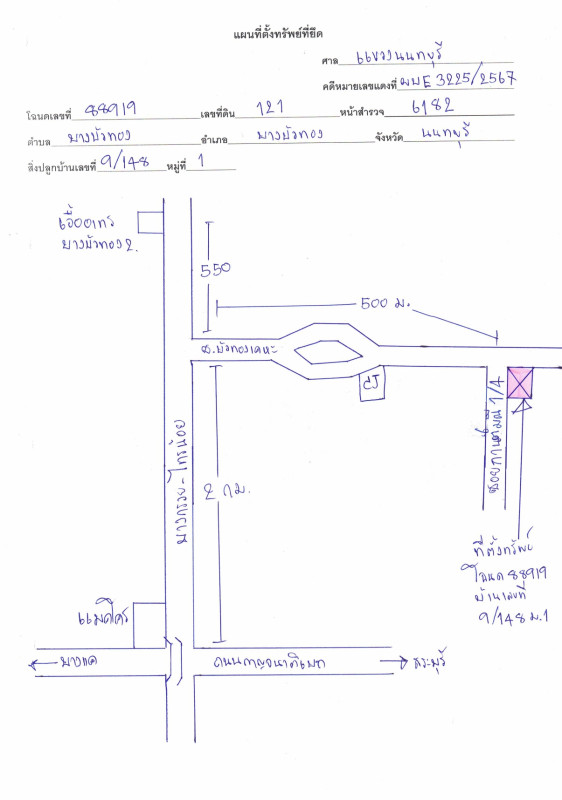 แผนที่ตั้งทรัพย์ที่ยึด
ศาล แขวงนนทบุรี
คดีหมายเลขแดงที่ ผบE 3225/2567
โฉนดเลขที่ 88919 เลขที่ดิน 121 หน้าสำรวจ 6182
ตำบล บางบัวทอง อำเภอ บางบัวทอง จังหวัด นนทบุรี
สิ่งปลูกบ้านเลขที่ 9/148 หมู่ที่ 1
เอื้ออาทร
บางบัวทอง 2.
550
500 ม.
ซ.บัวทองเคหะ
CJ
ซอยกานต์มณี 1/4
บางกรวย-ไทรน้อย
2 กม.
ที่ตั้งทรัพย์
โฉนด 88919
บ้านเลขที่
9/148 ม.1
แมคโคร
บางแค
ถนนกาญจนาภิเษก
สระบุรี